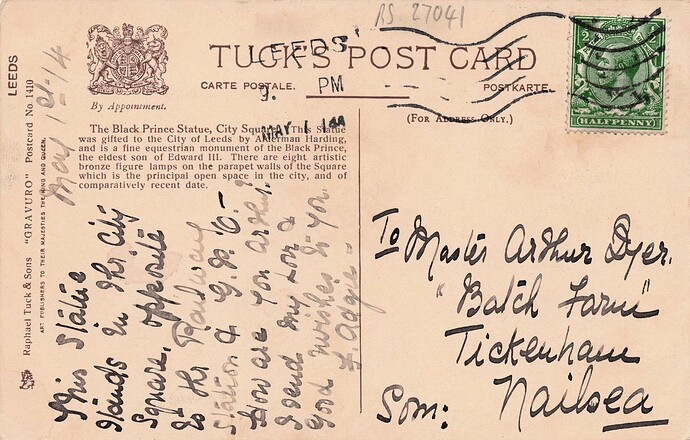 RS 27041
LEEDS
Raphael Tuck & Sons "GRAVURO" Postcard No 1410
ART PUBLISHERS TO THEIR MAJESTIES THE KING AND QUEEN.
By Appointment.
TUCK'S POST CARD
CARTE POSTALE.
POSTKARTE.
(For Address Only.)
LEEDS
9. PM
MAY 1 14
HALFPENNY
The Black Prince Statue, City Square. This Statue
was gifted to the City of Leeds by Alderman Harding,
and is a fine equestrian monument of the Black Prince,
the eldest son of Edward III. There are eight artistic
bronze figure lamps on the parapet walls of the Square
which is the principal open space in the city, and of
comparatively recent date.
May 1st/14
This Statue
stands in the City
Square, opposite
to the Railway
Station & G.P.O.
How are you Arthur?
I send my love &
good wishes to you.
To Master Arthur Dyer.
"Batch Farm"
Tickenham
Nailsea
Som: